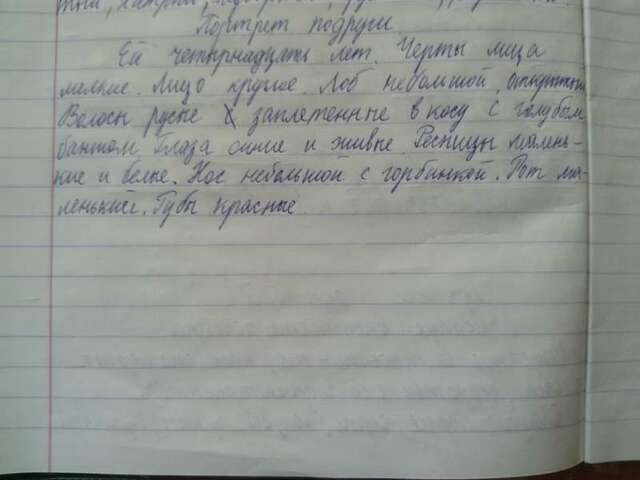 Портрет подруги
Ей четырнадцать лет. Черты лица
милые. Лицо круглое. Лоб небольшой, открытый
Волосы русые заплетенные в косу с голубым
бантом. Глаза синие и живые. Ресницы
ные и белые. Нос небольшой с горбинкой. Рот ма-
ленький. Губы красные.